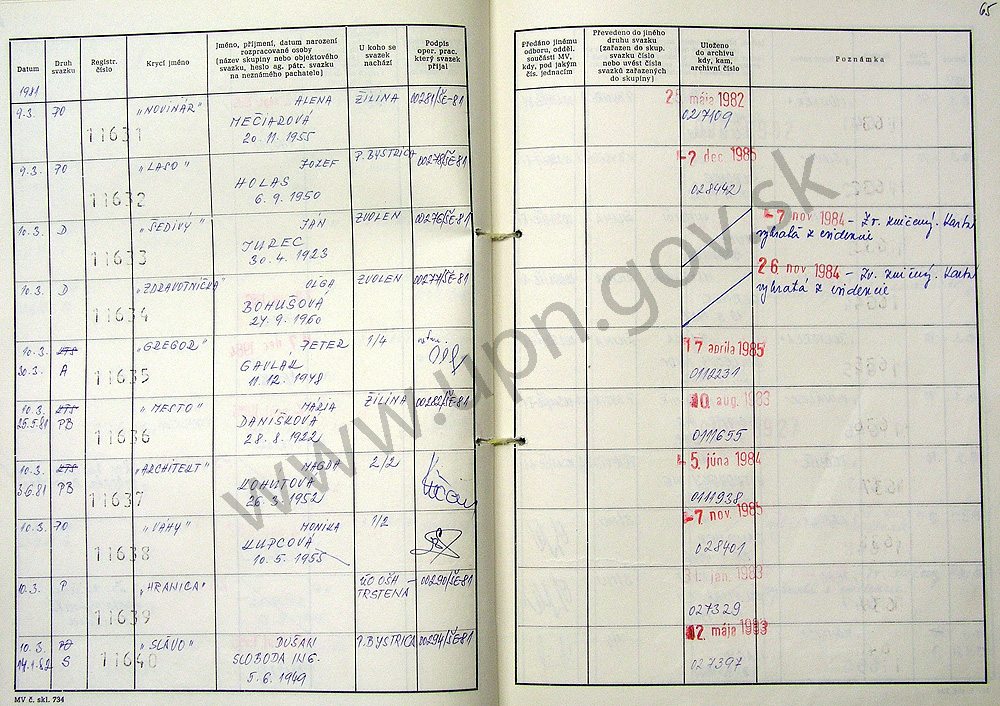 65
Datum
Druh svazku
Registr. číslo
Krycí jméno
Jméno, příjmení, datum narození
rozpracované osoby
(název skupiny nebo objektového
svazku, heslo ag. pátr. svazku
na neznámého pachatele)
U koho se
svazek
nachází
Podpis
oper. prac.
který svazek
přijal
Předáno jinému
odboru, odděl.
součásti MV,
kdy, pod jakým
čís. jednacím
Převedeno do jiného
druhu svazku
(zařazen do skup.
svazku číslo
nebo uvést čísla
svazků zařazených
do skupiny)
Uloženo
do archivu
kdy, kam,
archivní číslo
Poznámka
1981
9.3. PO 11631 „NOVINÁR" ALENA ŽILINA 00281/ŠE-81
MEČIAROVÁ
20. 11. 1955
mája 1982
027109
9.3. PO 11632 „LASO" JOZEF P. BYSTRICA 00278/ŠE-81
HOLAS
6. 9. 1950
-2 dec 1985
028442
10.3. D 11633 „ŠEDIVÝ" JÁN ZVOLEN 00276/ŠE-81
JUREC
30. 4. 1923
-7 nov 1984 - Zv. zničený. Karta
vybratá z evidencie
10.3. D 11634 „ZDRAVOTNÍČKA" OĽGA ZVOLEN 00277/ŠE-81
BOHUŠOVÁ
27. 9. 1960
26. nov 1984 - Zv. zničený. Karta
vybratá z evidencie
10.3. KTS 11635 „GREGOR" PETER 1/4
30.3. A GAVLAK
11. 12. 1948
17 apríla 1985
0112231
10.3. KTS 11636 „MESTO" MÁRIA ŽILINA 00282/ŠE-81
25.5.81 PB DANÍŠKOVÁ
28. 8. 1922
10 aug. 1983
0111655
10.3. KTS 11637 „ARCHITEKT" MAGDA 2/2
3.6.81 PB KOHÚTOVÁ
26. 3. 1952
5. júna 1984
0111938
10.3. PO 11638 „VÁHY" MONIKA 1/2
KUPCOVÁ
10. 5. 1955
-7 nov 1985
028401
10.3. P 11639 „HRANICA" ÚO OŠK 00290/ŠE-81
TRSTENÁ
31. jan. 1983
027329
10.3. PO 11640 „SLÁVO" DUŠAN P. BYSTRICA 00294/ŠE-81
14.1.82 S SLOBODA ING.
5. 6. 1949
12. mája 1983
027397
MV č. skl. 734
www.upn.gov.sk